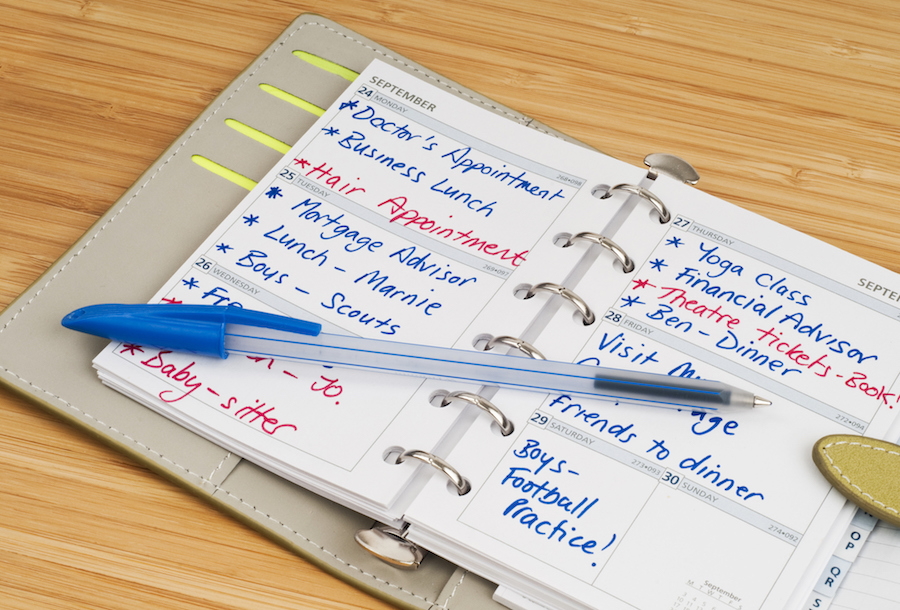 SEPTEMBER
24 MONDAY
*Doctor's Appointment
*Business Lunch
*Hair Appointment
268•098
25 TUESDAY
* Mortgage Advisor
* Lunch - Marnie
* Boys - Scouts
269•097
26 WEDNESDAY
*
- Jo.
* Baby-sitter
SEPTE
27 THURSDAY
* Yoga Class
* Financial Advisor
* Theatre tickets-Book!
* Ben-Dinner
28 FRIDAY
Visit
Friends to dinner
272•094
29 SATURDAY
Boys-
Football
Practice!
273•093
30 SUNDAY
274•092
September
M T W T F S S
OP
QR
S